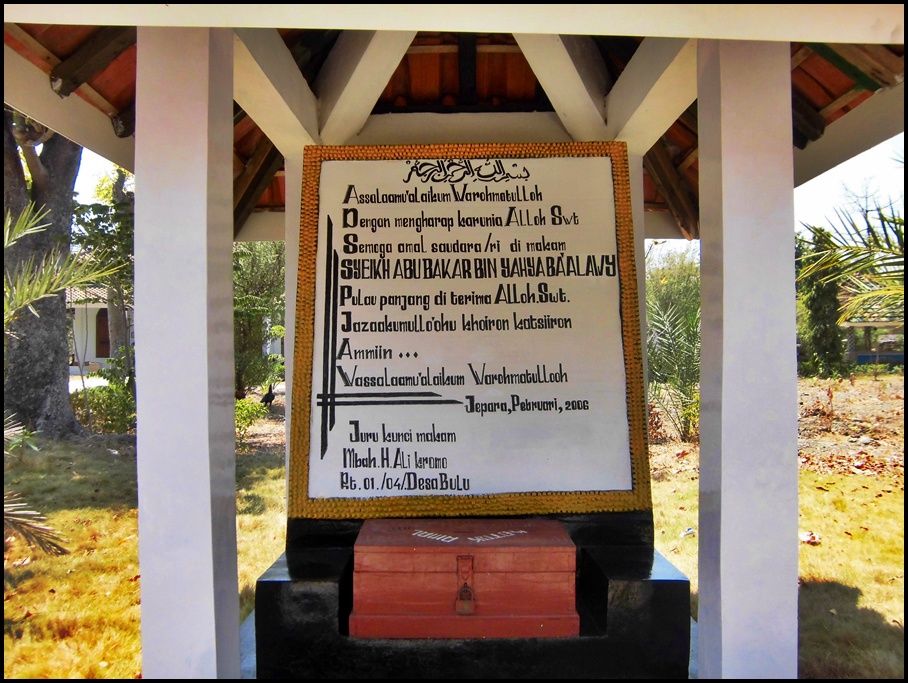 بسم الله الرحمن الرحيم
Assalaamu'alaikum Warohmatulloh
Dengan mengharap karunia ALLoh Swt
Semoga amal saudara/ri di makam
SYEIKH ABU BAKAR BIN YAHYA BA'ALAWY
Pulau panjang di terima ALLoh.Swt.
Jazaakumullo'ohu khoiron katsiiron
Ammiin ...
Wassalaamu'alaikum Warohmatullooh
Jepara,Pebruari, 2006
Juru kunci makam
Mbah.H.ALi kromo
Rt.01./04/Desa BuLu
KOTAK AMAL